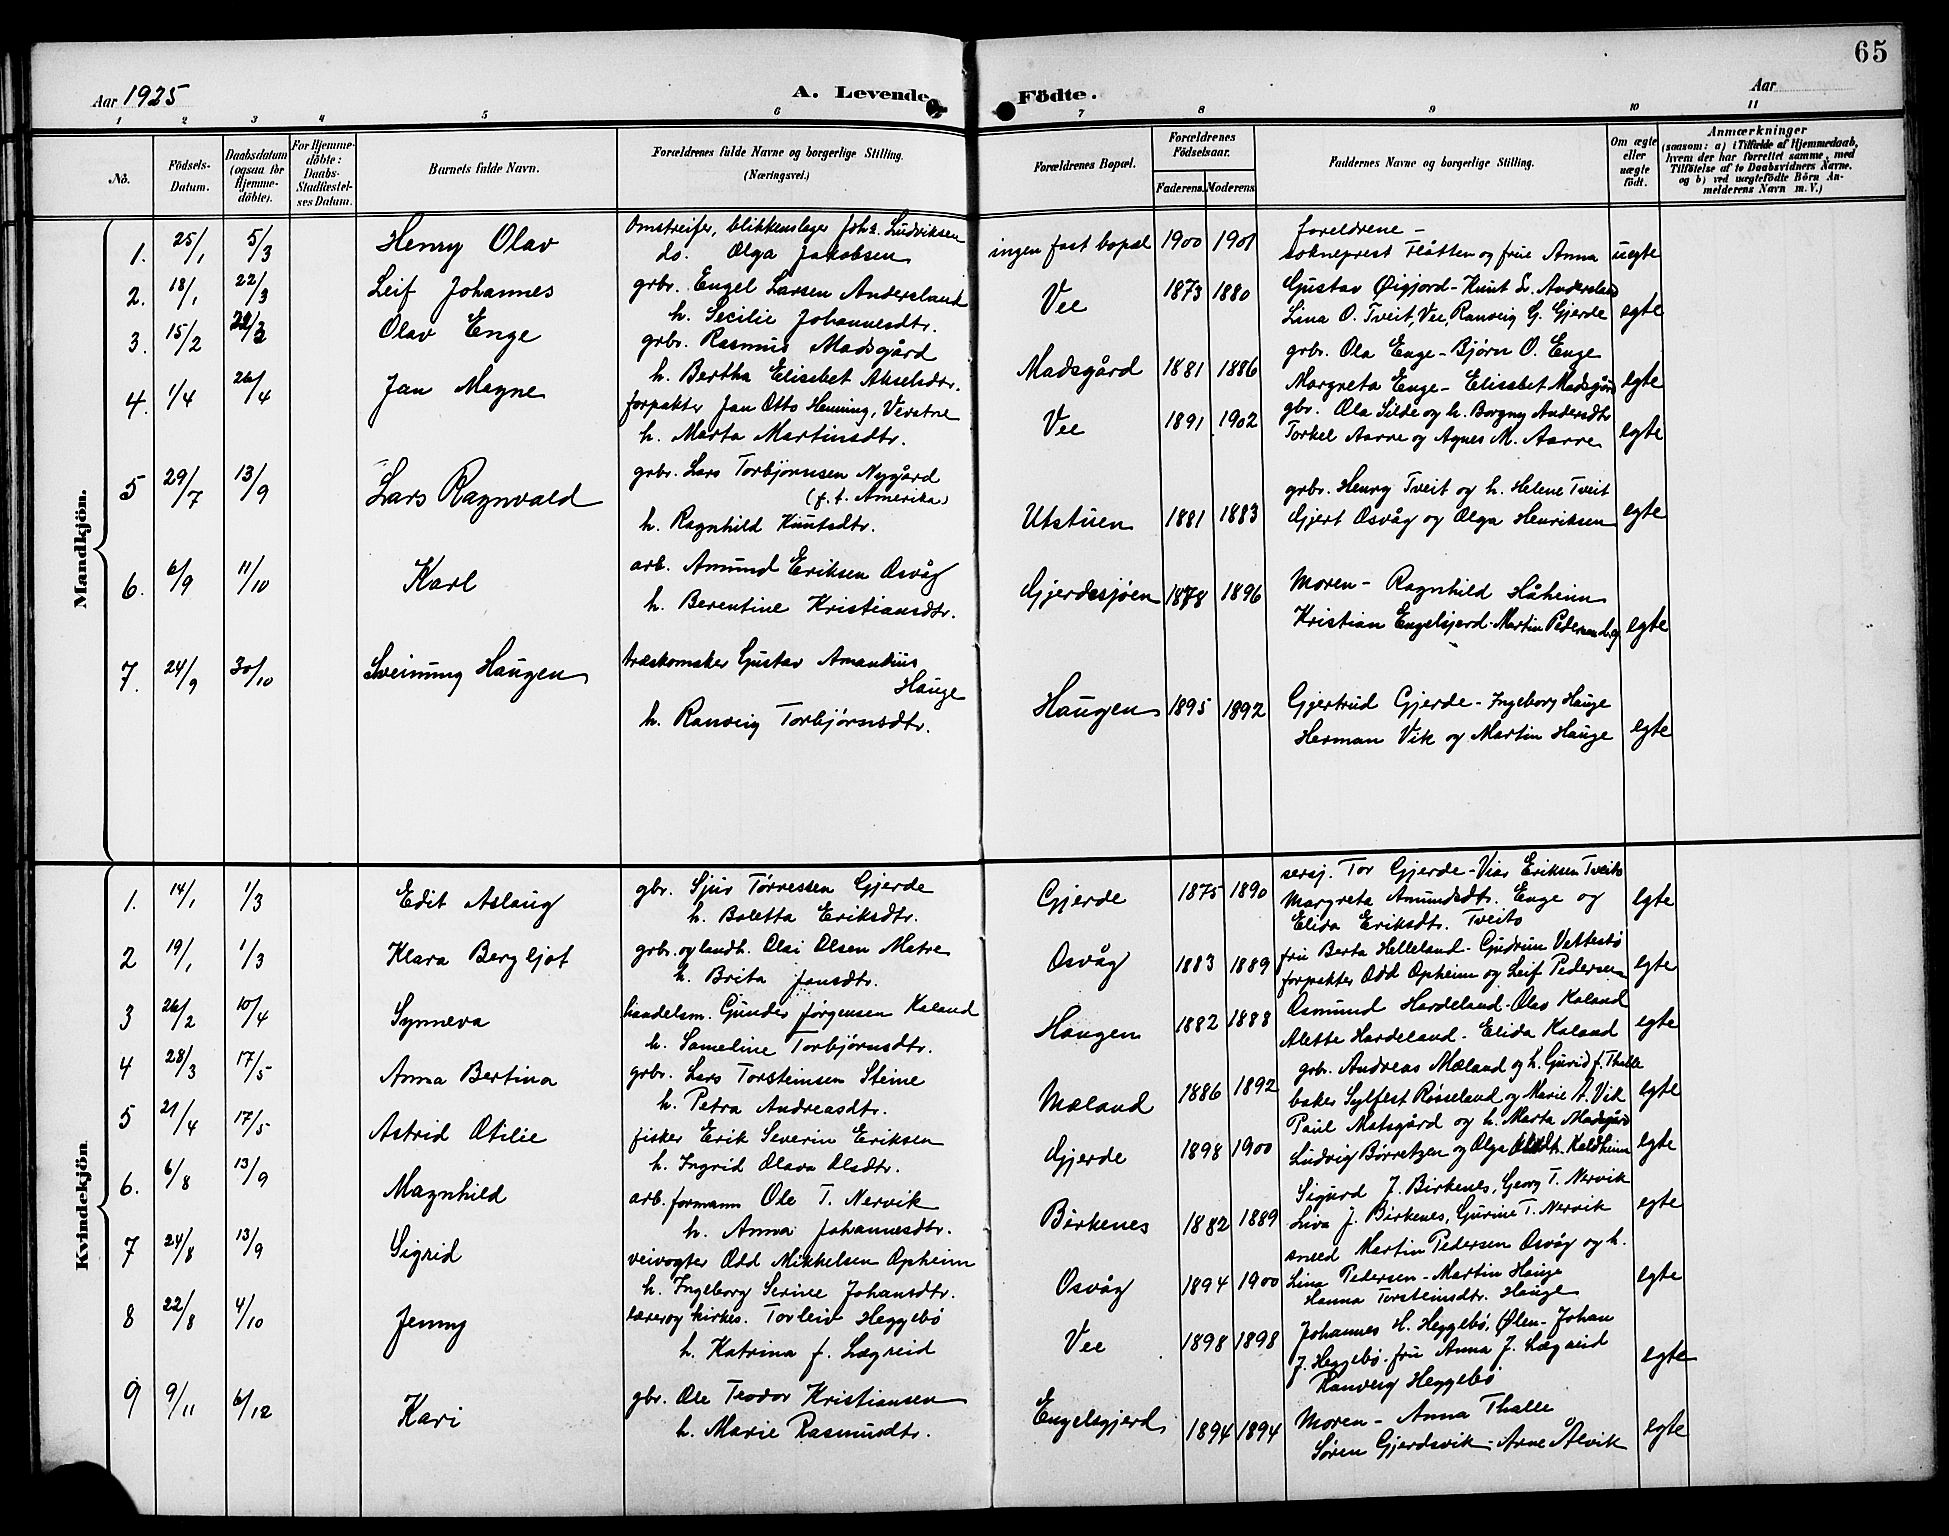 65
Aar 1925
A. Levende Födte.
Aar
1 2 3 4 5 6 7 8 9 10 11
No.
Födsels-Datum.
Daabsdatum (ogsaa för Hjemme-döbte).
For Hjemme-döbte: Daabs-Stadfæstel-ses Datum.
Barnets fulde Navn.
Forældrenes fulde Navne og borgerlige Stilling. (Næringsvei.)
Forældrenes Bopæl.
Forældrenes Födselsaar.
Faderens. Moderens.
Faddernes Navne og borgerlige Stilling.
Om ægte eller uægte födt.
Anmærkninger (saasom: a) i Tilfælde af Hjemmedaab, hvem der har forrettet samme, med Tilföielse af to Daabsvidners Navne, og b) ved uægtefödte Börn An-melderens Navn m. V.)
Mandkjön.
1. 25/1 5/3 Henry Olav
Omstreifer, blikkenslager Joh. Ludviksen
do. Olga Jakobsen
ingen fast bopæl 1900 1901
foreldrene -
sokneprest Flåtten og frue Anna uegte
2. 18/1 22/3 Leif Johannes
grbr. Engel Larsen Andersland
h. Secilie Johannesdtr.
Vee 1873 1880
Gustav Øigjord - Knut L. Andersland
Lina O. Tveit, Vee, Ranveig G. Gjerde egte
3. 15/2 22/3 Olav Enge
grbr. Rasmus Madsgård
h. Bertha Elisebet Akselsdtr.
Madsgård 1881 1886
grbr. Ola Enge - Bjørn O. Enge
Margreta Enge - Elisabet Madsgård egte
4. 1/4 26/4 Jan Magne
forpakter Jan Otto Henning, Verstne
h. Marta Martinsdtr.
Vee 1891 1902
gbr. Ola Silde og h. Borgny Andersdtr
Torkel Aarre og Agnes M. Aarre egte
5 29/7 13/9 Lars Ragnvald
grbr. Lars Torbjørnsen Nygård
(f. t. Amerika)
h. Ragnhild Knutsdtr.
Utstuen 1881 1883
grbr. Henry Tveit og h. Helene Tveit
Gjert Osvåg og Olga Henriksen egte
6. 6/9 11/10 Karl
arb. Amund Eriksen Osvåg
h. Berentine Kristiansdtr.
Gjerdesjøen 1878 1896
Moren - Ragnhild Håheim
Kristian Engelsjerd - Martin Pedersen egte
7. 24/9 30/10 Sveinung Haugen
træskomaker Gustav Amandius
Hauge
h. Ranveig Torbjørnsdtr.
Haugen 1895 1892
Gjertrud Gjerde - Ingeborg Hauge
Herman Vik og Martin Hauge egte
Kvindekjön
1. 14/1 1/3 Edit Aslaug
gbr. Sjur Tørressen Gjerde
h. Boletta Eriksdtr.
Gjerde 1875 1890
sersj. Tor Gjerde - Viar Eriksen Tveito
Margreta Amundsdtr. Enge og
Elida Eriksdtr. Tveito egte
2 19/1 1/3 Klara Bergljot
grbr. og landh. Olai Olsen Matre
h. Brita Jansdtr.
Osvåg 1883 1889
fru Berta Helleland - Gudrun Vattestø
forpakter Odd Opheim og Leif Pedersen egte
3 26/2 10/4 Synneva
handelsm. Gunder Jørgensen Kaland
h. Sameline Torbjørnsdtr.
Haugen 1882 1888
Osmund Hardeland - Olav Kaland
Alette Hardeland - Elida Kaland egte
4 28/3 17/5 Anna Bertina
grbr. Lars Torsteinsen Steine
h. Petra Andreasdtr.
Mæland 1886 1892
grbr. Andreas Mæland og h. Gurid f. Thalle
baker Sylfest Røsseland og Marie A. Vik egte
5 21/4 17/5 Astrid Otilie
fisker Erik Severin Eriksen
h. Ingrid Olava Olsdtr.
Gjerde 1898 1900
Paul Matsgård og h. Marta Madsgård
Ludvig Børretzen og Olga Kaldheim egte
6. 6/8 13/9 Magnhild
arb. formann Ole T. Nervik
h. Anna Johannesdtr.
Birkenes 1882 1889
Sigurd J. Birkenes, Georg T. Nervik
Liva J. Birkenes, Gurine T. Nervik egte
7 24/8 13/9 Sigrid
veivogter Odd Mikkelsen Opheim
h. Ingeborg Serine Johansdtr.
Osvåg 1894 1900
smed Martin Pedersen Osvåg og h.
Lina Pedersen - Martin Hauge
Hanna Torsteinsdtr. Hauge egte
8 22/8 4/10 Jenny
lærer og kirkes. Torleiv Heggebø
h. Katrina f. Lægreid
Vee 1898 1898
Johannes H. Heggebø, Ølen - Johan
J. Heggebø - fru Anna J. Lægreid
Ranveig Heggebø egte
9 9/11 6/12 Kari
gbr. Ole Teodor Kristiansen
h. Marie Rasmusdtr.
Engelsgjerd 1894 1894
Moren - Anna Thalle
Søren Gjerdsvik - Arne Ålvik egte